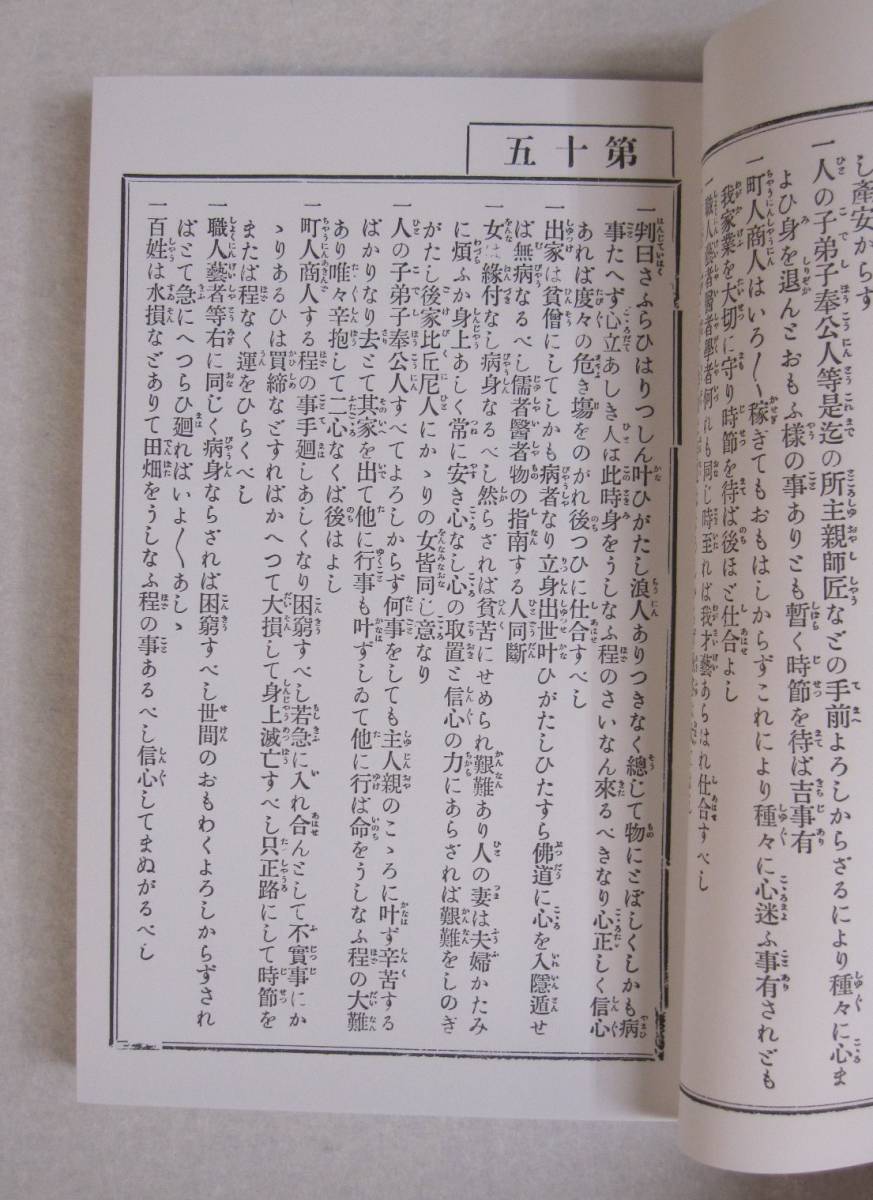 し產安からす
一人の子弟子奉公人等是迄の所主親師匠などの手前よろしからざるにより種々に心ま
よひ身を退んとおもふ樣の事ありとも暫く時節を待ば吉事有
一町人商人はいろ〳〵稼ぎてもおもはしからずこれにより種々に心迷ふ事有されども
我家業を大切に守り時節を待ば後ほど仕合よし
一職人藝者醫者學者何れも同じ時至れば我才藝あらはれ仕合すべし
第十五
一判曰さふらひはりつしん叶ひがたし浪人ありつきなく總じて物にとぼしくしかも病
事たへず心立あしき人は此時身をうしなふ程のさいなん來るべきなり心正しく信心
あれば度々の危き塲をのがれ後つひに仕合すべし
一出家は貧僧にしてしかも病者なり立身出世叶ひがたしひたすら佛道に心を入隱遁せ
ば無病なるべし儒者醫者物の指南する人同斷
一女は緣付なし病身なるべし然らざれば貧苦にせめられ艱難あり人の妻は夫婦かたみ
に煩ふか身上あしく常に安き心なし心の取置と信心の力にあらざれば艱難をしのぎ
がたし後家比丘尼人にかゝりの女皆同じ意なり
一人の子弟子奉公人すべてよろしからず何事をしても主人親のこゝろに叶ず辛苦する
ばかりなり去とて其家を出て他に行事も叶ずしゐて他に行ば命をうしなふ程の大難
あり唯々辛抱して二心なくば後はよし
一町人商人する程の事手廻しあしくなり困窮すべし若急に入れ合んとして不實事にか
ゝりあるひは買締などすればかへつて大損して身上滅亡すべし只正路にして時節を
または程なく運をひらくべし
一職人藝者等右に同じく病身ならざれば困窮すべし世間のおもわくよろしからずされ
ばとて急にへつらひ廻ればいよ〳〵あしゝ
一百姓は水損などありて田畑をうしなふ程の事あるべし信心してまぬがるべし